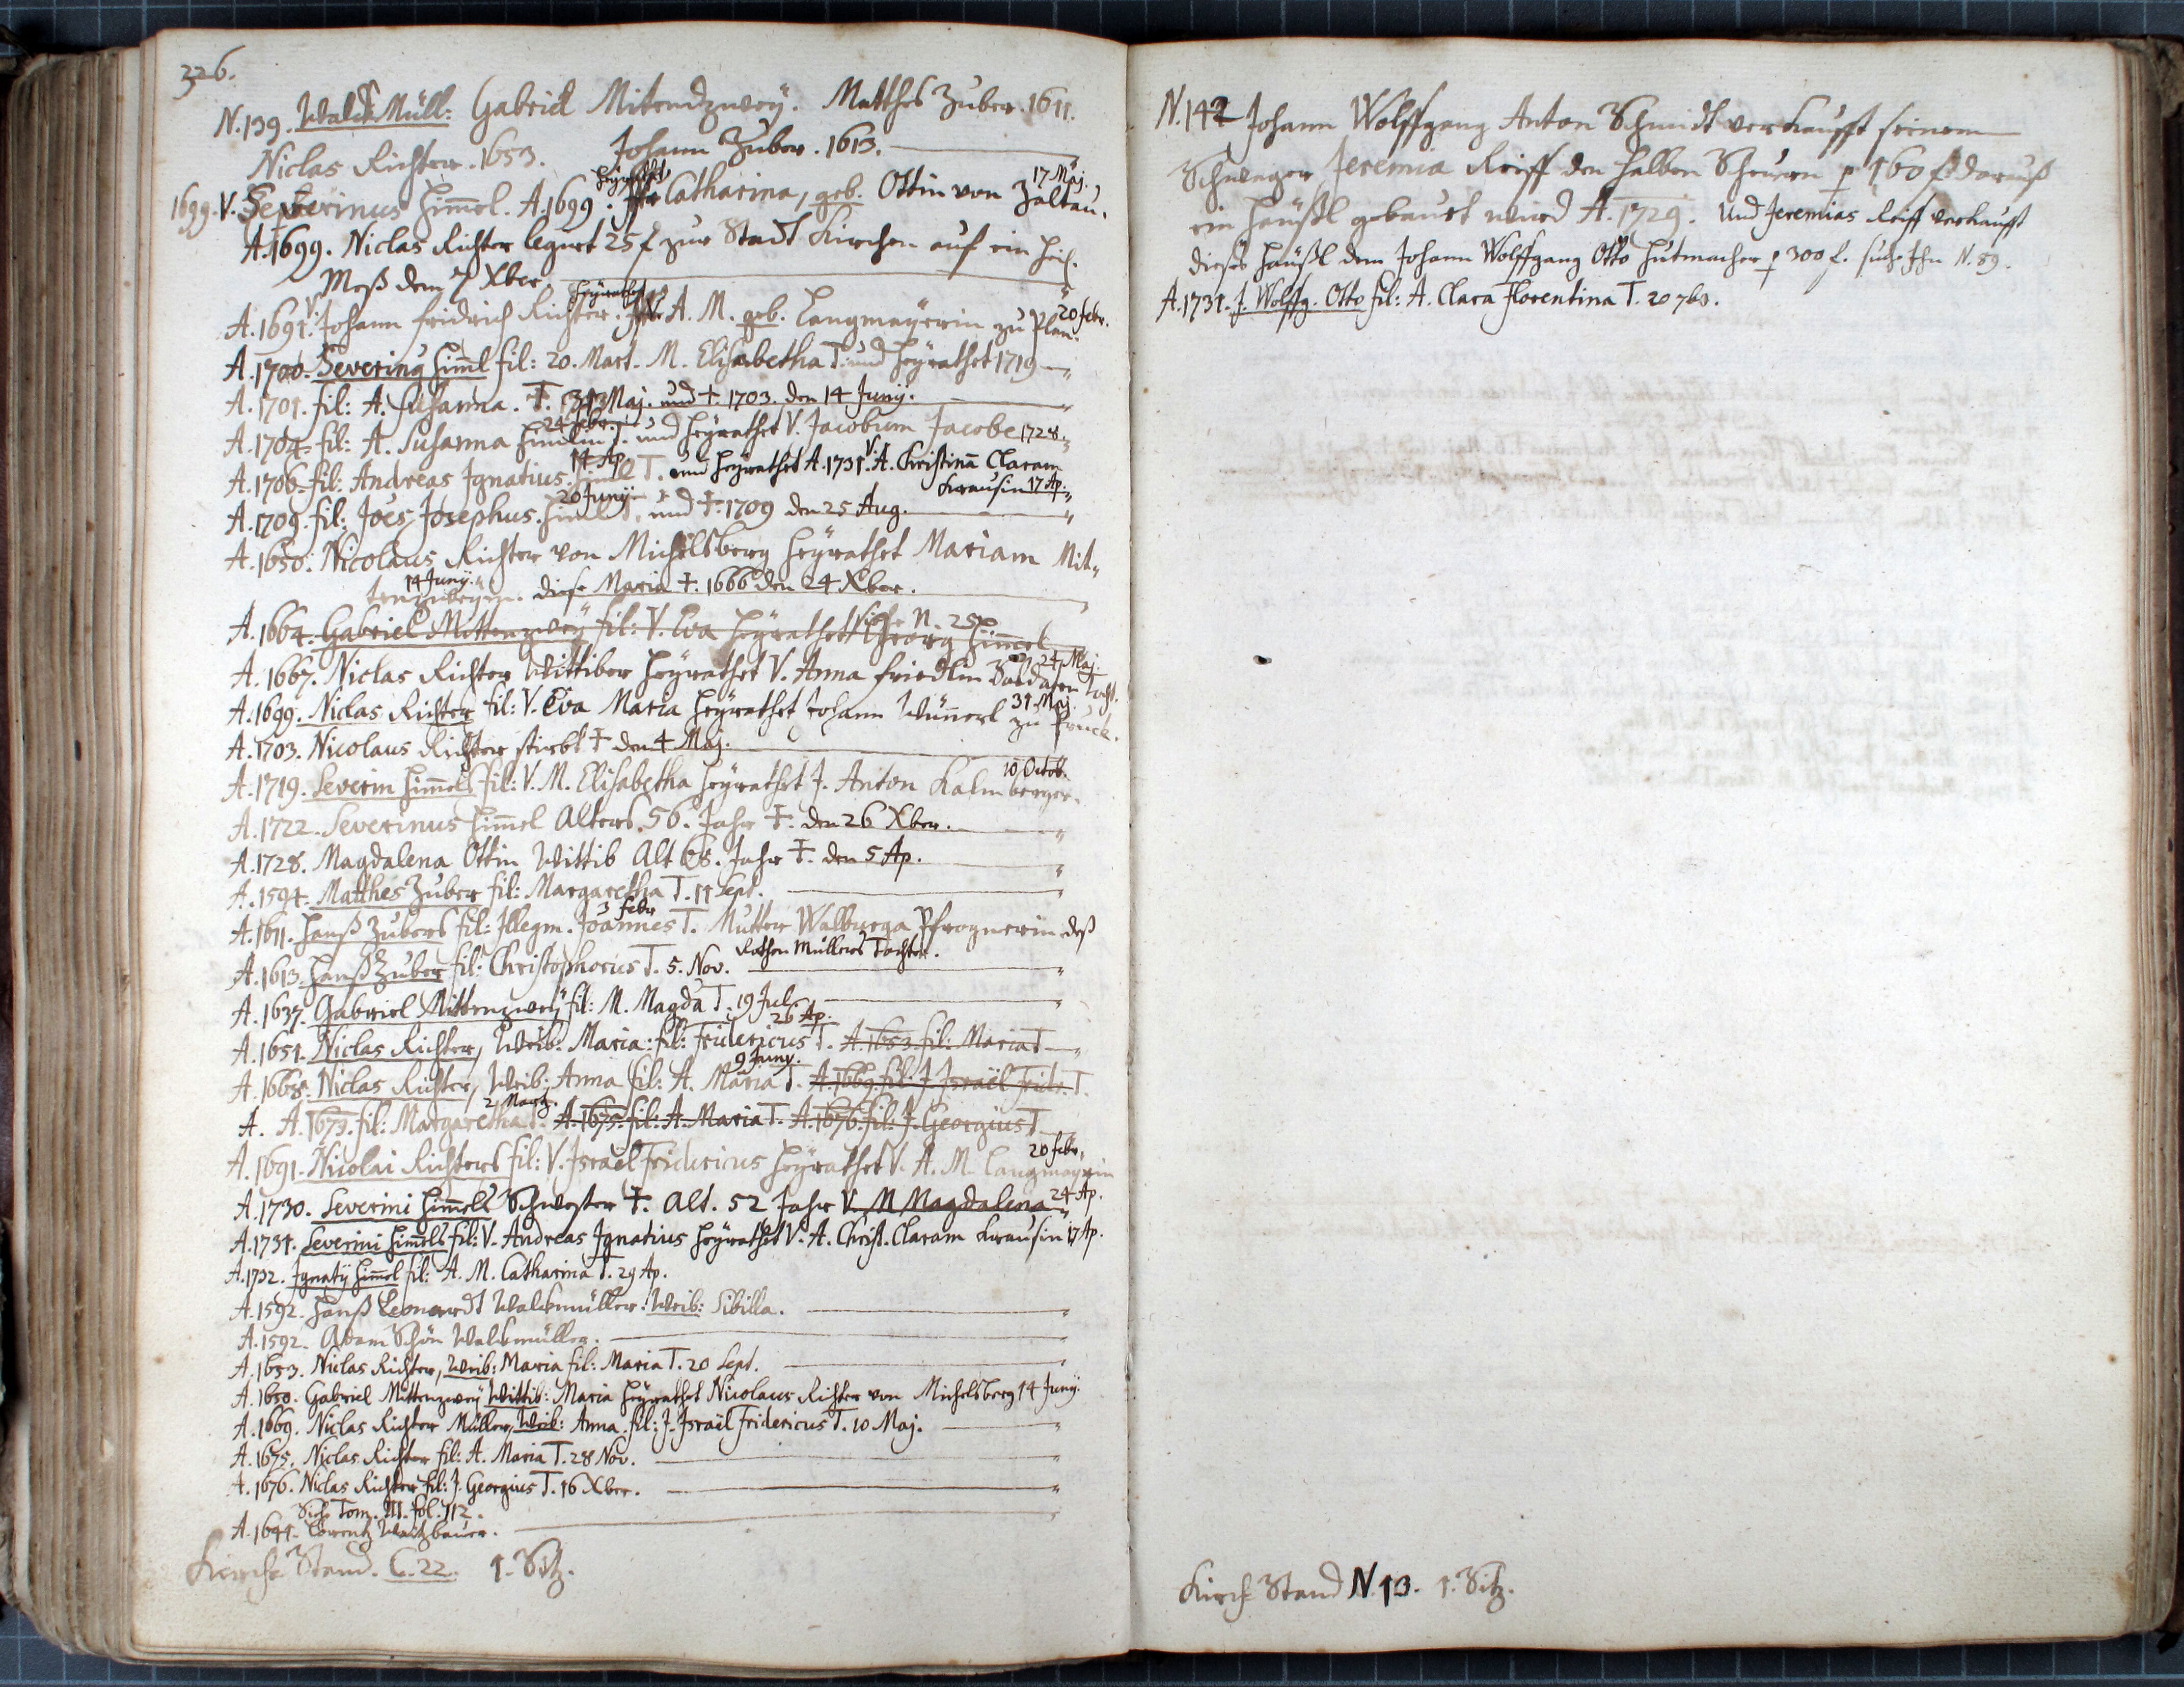 326.
N.139. Walck Müll: Gabriel Mitendzweÿ. Matthes Zuber. 1611.
Niclas Richter. 1653. Johann Zuber. 1613.
1699. V. Severinus Himel. A. 1699. heÿrathet Catharina, geb. Ottin von Zaltau. 17 Maj.
A. 1699. Niclas Richter legirt 25 f zur Stadt Kirchen auf ein heil.
Meß dem 7 Xber.
A. 1691. V. Johann Fridrich Richter. heÿrathet V. A. M. geb. Langmaÿerin zu Plan. 20 febr.
A. 1700. Severing Himl fil: 20. Mart. M. Elisabetha T. und heÿrathet 1719
A. 1701. fil: A. Susanna. T. 31 Maj. und †. 1703. den 14 Junÿ.
A. 1704. fil: A. Susanna Himlin T. 24 febr. und heÿrathet V. Jacobum Jacobe 1728.
A. 1706. fil: Andreas Ignatius. Himel T. 14 Ap. und heÿrathet A. 1731. V. A. Christina Claram
Krausin 17 Ap.
A. 1709. fil: Joes Josephus. Himl T. 20 Junÿ. und †. 1709 den 25 Aug.
A. 1650. Nicolaus Richter von Michelsberg heÿrathet Mariam Mit-
tenzweÿin. 14 Junÿ. diese Maria †. 1666 den 24 Xber.
A. 1664. Gabriel Mittenzweÿ fil: V. Eva heÿrathet Georg Himel siehe N. 25
A. 1667. Niclas Richter Wittiber heÿrathet V. Anna Friedlin 24 Maj.
A. 1699. Niclas Richter fil: V. Eva Maria heÿrathet Johann Wünnerl zu Pruck. 31 Maj.
A. 1703. Nicolaus Richter stirbt † den 4 Maj.
A. 1719. Severin Himels fil: V. M. Elisabetha heÿrathet J. Anton Kalmberger. 10 Octob.
A. 1722. Severinus Himel Alters. 56. Jahr †. den 26 Xber.
A. 1728. Magdalena Ottin Wittib Alt 68. Jahr †. den 5 Ap.
A. 1594. Matthes Zuber fil: Margaretha T. 11 Sept.
A. 1611. Hanß Zubers fil: Illegm. Joannes T. 3 febr Mutter Walburga Pfrognerin deß
Rothen Müllers Tochter.
A. 1613. Hanß Zuber fil: Christophorus T. 5. Nov.
A. 1637. Gabriel Mittenzweÿ fil: M. Magda T. 19 Jul.
A. 1651. Niclas Richter, Weib: Maria: fil: Fridericus T. 26 Ap. A. 1653. fil: Maria T
A. 1668. Niclas Richter, Weib: Anna fil: A. Maria T. 9 Junÿ. A. 1669. fil: J. Israël Frider. T.
A. A. 1673. fil: Margaretha T. 2 Martz. A. 1675. fil: A. Maria T. A. 1676. fil: J. Georgius T
A. 1691. Nicolai Richters fil: V. Israel Fridericus heÿrathet V. A. M. Langmaÿrin 20 febr,
A. 1730. Severini Himels Schwester †. Alt. 52 Jahr V. M Magdalena 24 Ap.
A. 1731. Severini Himels fil: V. Andreas Ignatius heÿrathet V. A. Christ. Claram Krausin 17 Ap.
A. 1732. Ignatÿ Himel fil: A. M. Catharina T. 29 Ap.
A. 1592. Hanß Leonardt Walckmüller. Weib: Sibilla.
A. 1592. Adam Schön Walckmüller.
A. 1653. Niclas Richter, Weib: Maria fil: Maria T. 20 Sept.
A. 1650. Gabriel Mittenzweÿ Wittib: Maria heÿrathet Nicolaus Richter von Michelsberg 14 Junÿ.
A. 1669. Niclas Richter Müller, Weib: Anna. fil: J. Israël Fridericus T. 10 Maj.
A. 1675. Niclas Richter fil: A. Maria T. 28 Nov.
A. 1676. Niclas Richter fil: J. Georgius T. 16 Xber.
Sieh Tom. III. fol. 112.
A. 1644. Lorentz
Kirch Stand. C. 22. 1. Sitz.
N. 142 Johann Wolffgang Anton Schmidt verkaufft seinem
Schwager Jeremia Reiff den halben Scheuern p 160 f darauß
ein häußl gebauet wird A. 1729. Und Jeremias Reiff verkaufft
dieses häußl dem Johann Wolffgang Otto Hutmacher p 300 f. such Ihn N. 89.
A. 1731. J. Wolffg. Otto fil: A. Clara Florentina T. 20 7br.
Kirch Stand N 13. 1. Sitz.